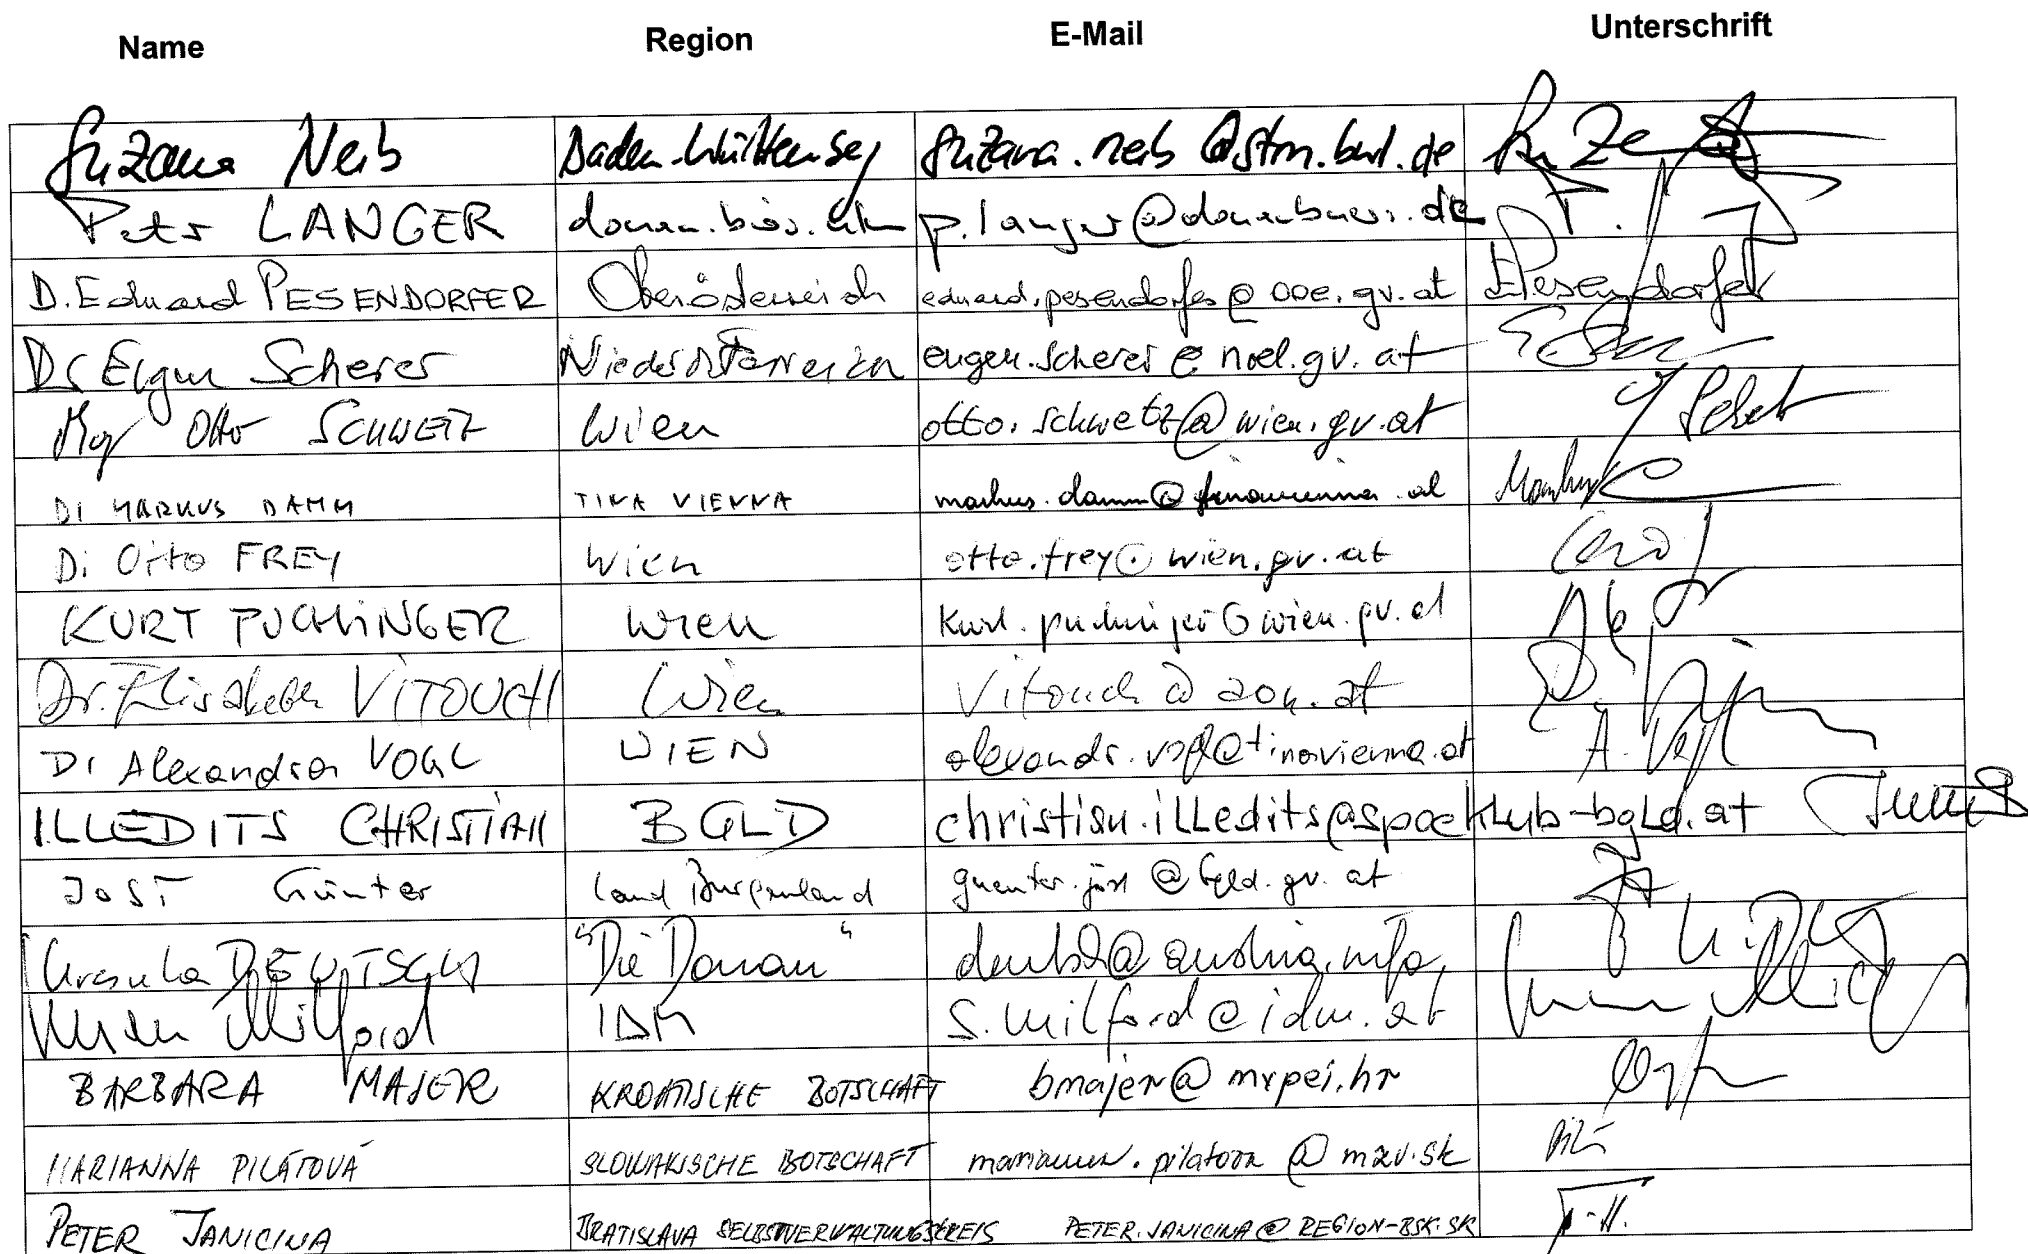 Name Region E-Mail Unterschrift
Suzana Neib Baden-Württemberg suzana.neib@stm.bwl.de
Peter LANGER p.langer@donaubuero.de
D. Eduard PESENDORFER Oberösterreich eduard.pesendorfer@ooe.gv.at EPesendorfer
Dr Eugen Scherer Niederösterreich eugen.scherer@noel.gv.at
Mag Otto SCHWETZ Wien otto.schwetz@wien.gv.at
DI MARKUS DAMM TINA VIENNA markus.damm@tinavienna.at
DI Otto FREY Wien otto.frey@wien.gv.at
KURT PUCHINGER Wien kurt.puchinger@wien.gv.at
Dr. Elisabeth VITOUCH Wien vitouch@aon.at
DI Alexandra VOGL WIEN alexandr.vogl@tinavienna.at A. Vogl
ILLEDITS CHRISTIAN BGLD christian.illedits@spoeklub-bgld.at
JOST Günter Land Burgenland guenter.jost@bgld.gv.at
Ursula DEUTSCH "Die Donau" deutsch@austria.info
Milford IDM s.milford@idm.at
BARBARA MAJER KROATISCHE BOTSCHAFT bmajer@mvpei.hr
MARIANNA PILÁTOVÁ SLOWAKISCHE BOTSCHAFT marianna.pilatova@mzv.sk
PETER JANICINA BRATISLAVA SELBSTVERWALTUNGSKREIS PETER.JANICINA@REGION-BSK.SK